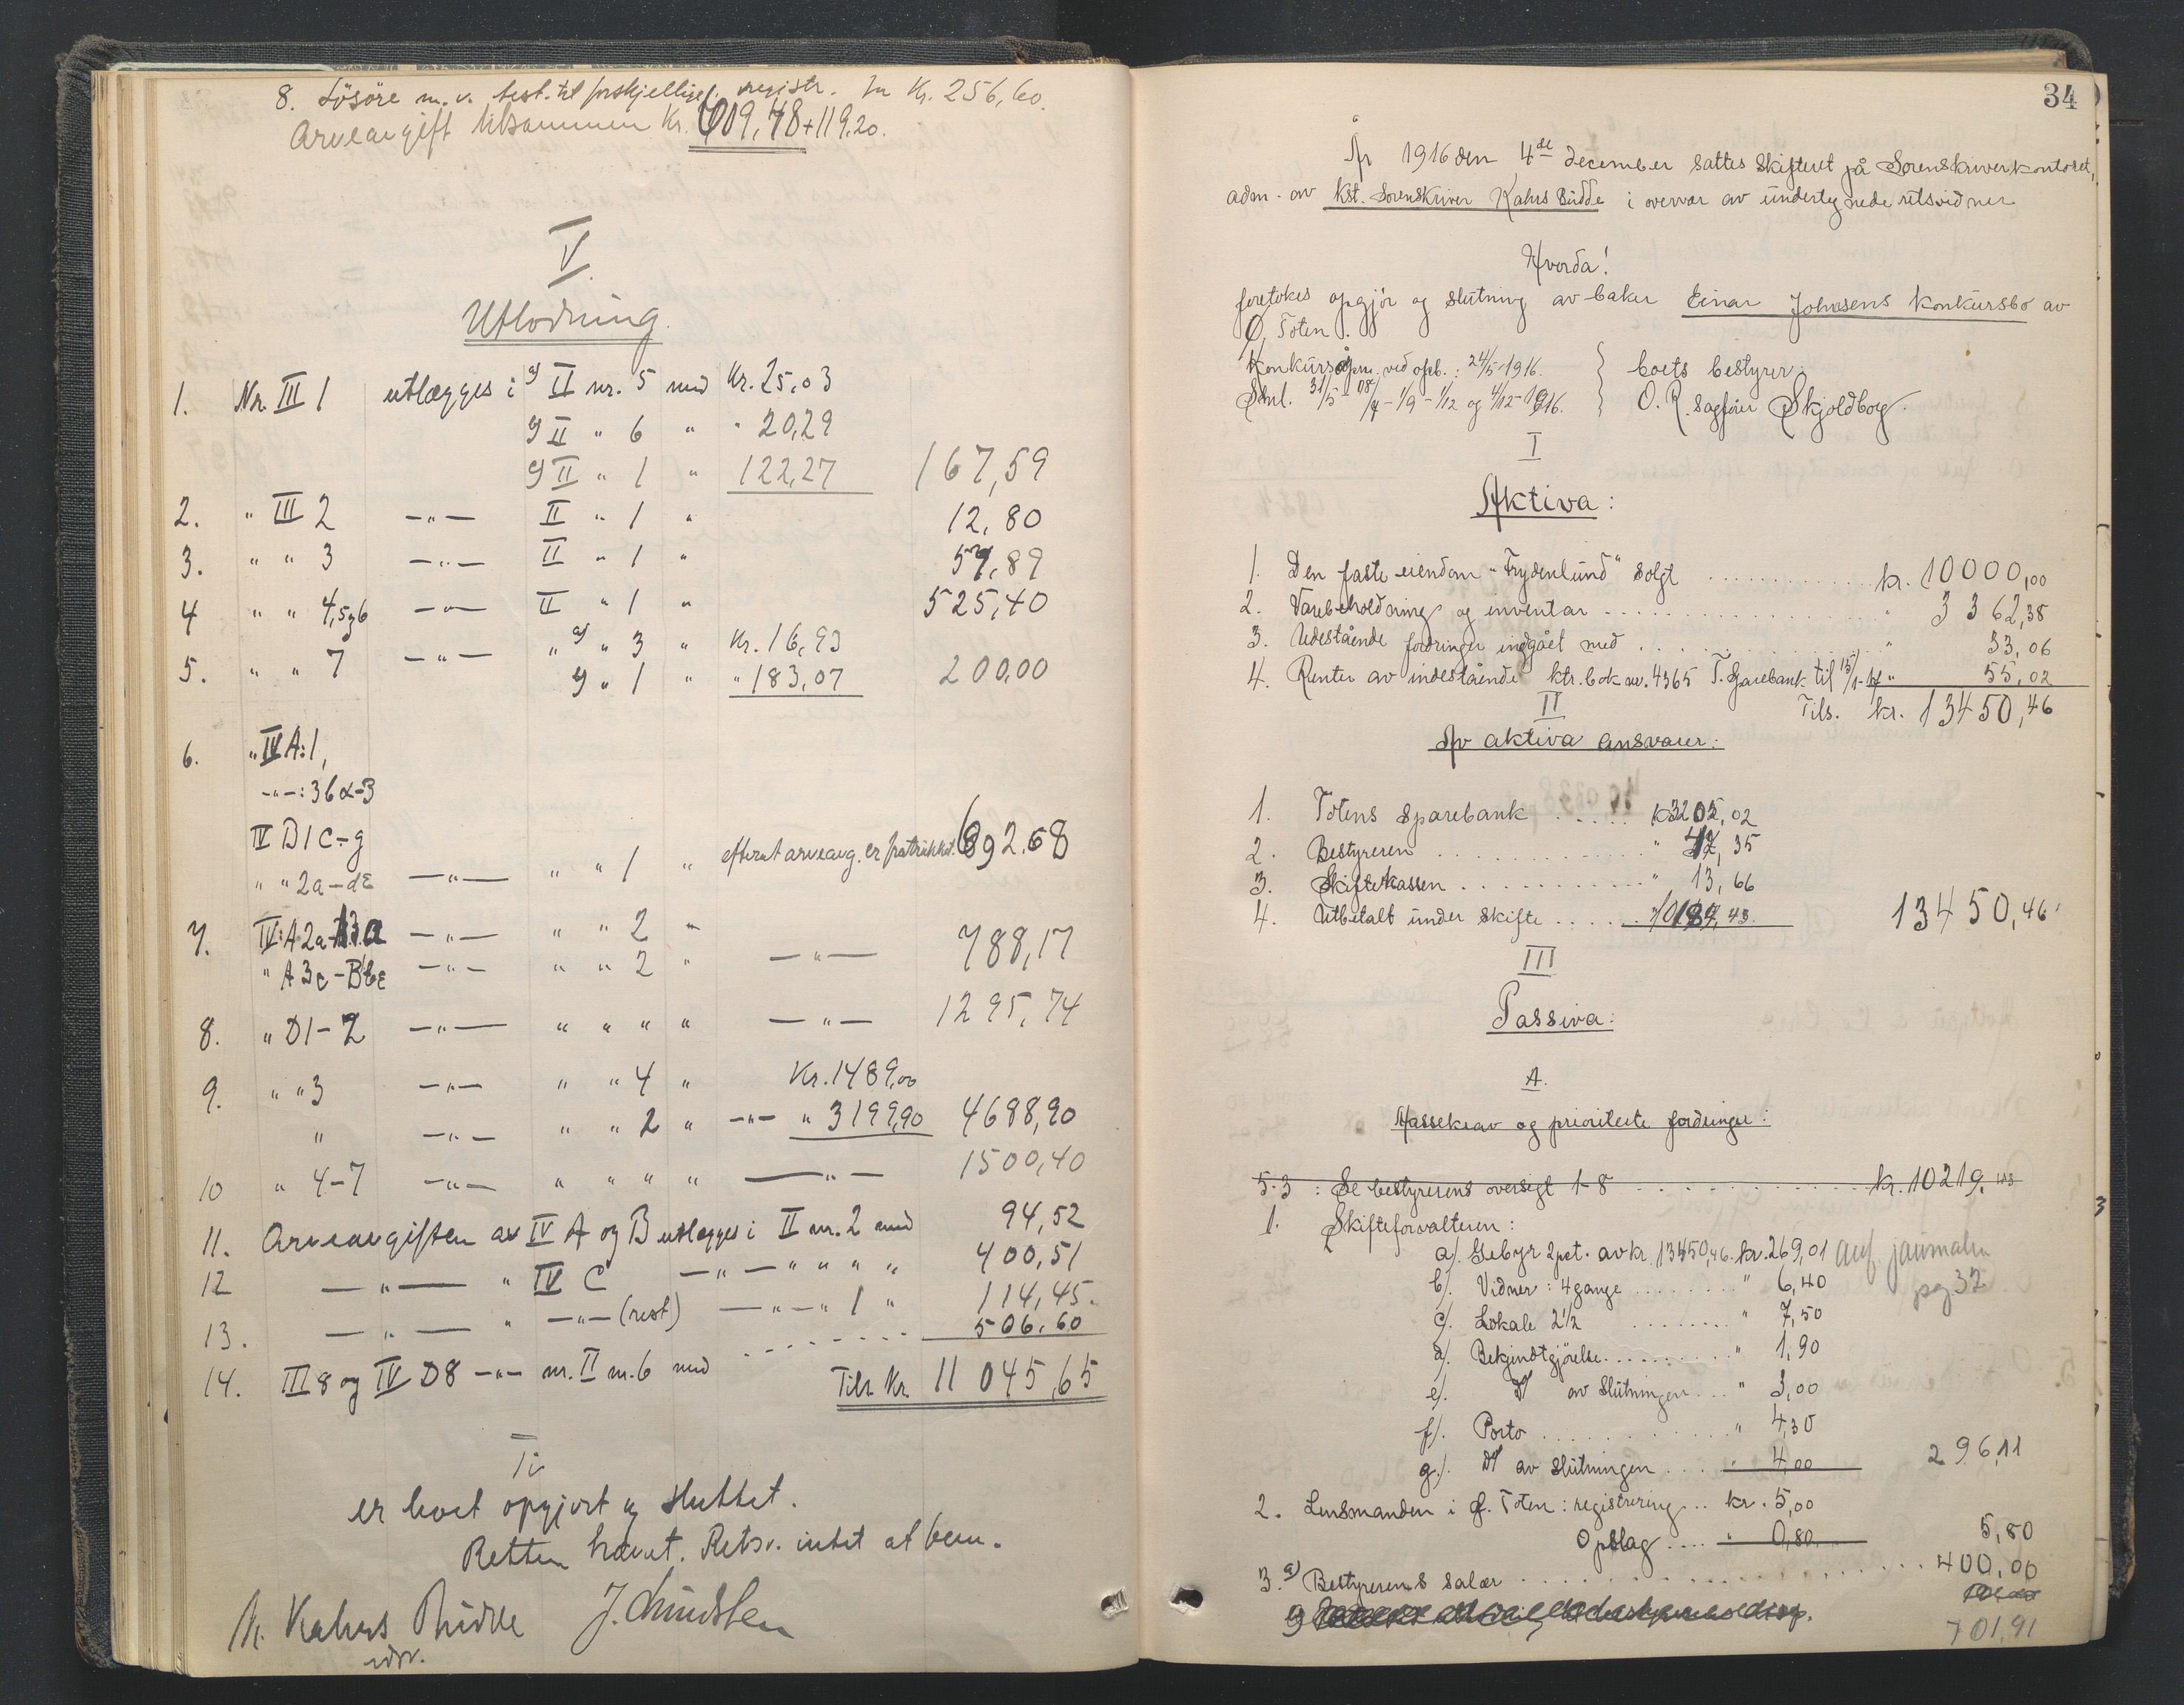 8. Løsøre m.v. test. til forskjellige, registr. for Kr. 256,60.
Arveavgift tilsammen Kr. 609,48 + 119,20.
V
Utlodning.
1. Nr. III 1 utlægges i a) II nr. 5 med Kr. 25,03
b) II " 6 " " 20,29
c) II " 1 " 122,27 167,59
2. " III 2 —"— II " 1 " 12,80
3. " " 3 —"— II " 1 " 57,89
4 " " 4,5 og 6 —"— II " 1 " 525,40
5. " " 7 —"— a) " " 3 " Kr. 16,93
b) " 1 " " 183,07 200,00
6. " IV A:1,
—"—: 3 b α-3
IV B 1 c-g
" " 2a-dε —"— " " 1 " efterat arveavg. er fratrukket. 692.68
7. IV: A 2a-A3a —"— " " 2 "
" A 3c-B1bε —"— " " 2 " —"— 788,17
8. " D1-2 —"— " " " " —"— 1295,74
9. " " 3 —"— " " 4 " Kr. 1489,00
" —"— " " 2 " —"— " 3199,90 4688,90
10 " 4-7 —"— " " " " —"— 1500,40
11. Arveavgiften av IV A og B utlægges i II nr. 2 med 94,52
12 —"— " IV C —"— " " " " 400,51
13. —"— " —"— (rest) —"— " 1 " 114,45.
14. III 8 og IV D8 —"— nr. II nr. 6 med ..... 506.60
Tils. Kr. 11 045,65
Ti
er boet opgjort og sluttet.
Retten hævet. Retsv. intet at bem.
N. Kahrs Budde J. Lundsten
34
År 1916 den 4de december sattes skifteret på Sorenskriverkontoret,
adm. av kst. Sorenskriver Kahrs Budde i overvær av undertegnede retsvidner
Hvorda!
foretokes opgjør og slutning av baker Einar Johnsens konkursbo av
Ø. Toten.
Konkursåpn. ved opb.: 24/5-1916. } boets bestyrer:
Saml. 31/5 - 08/7 - 1/9 - 1/12 og 4/12-1916. } O.R. sagfører Skjoldborg.
I
Aktiva:
1. Den faste eiendom "Frydenlund" solgt ........ kr. 10000,00
2. Varebeholdning og inventar ........ " 3362,38
3. Udestående fordringer indgået med ........ " 33,06
4. Renter av indestående ktr. bok nr. 4365 T. Sparebank til 15/1-17 " 55,02
Tils. kr. 13450,46
II
Av aktiva ansvarer:
1. Totens sparebank ..... k 3205,02
2. Bestyreren ........ " 42,35
3. Skiftekassen ........ " 13,66
4. Utbetalt under skifte ..... " 10189,43. 13450,46.
III
Passiva:
A.
Massekrav og prioriterte fordringer:
5-3 : Se bestyrerens oversigt 1-8 ........ kr. 10219,43
1. Skifteforvalteren:
a). Gebyr 2 pct. av kr. 13450,46. kr. 269,01 anf. journalen
b). Vidner: 4 gange ........ " 6,40 pg 32
c). Lokale 2 1/2 ........ " 7,50
d). Bekjendtgjørelse ........ " 1,90
e). Do av slutningen ... " 3,00
f). Porto ........ " 4,30
g.). Do av slutningen .... " 4,00 296,11
2. Lensmanden i Ø. Toten: registrering ... kr. 5,00
Opslag .... " 0,80. 5,80
3. a) Bestyrerens salær ........ 400,00
701,91